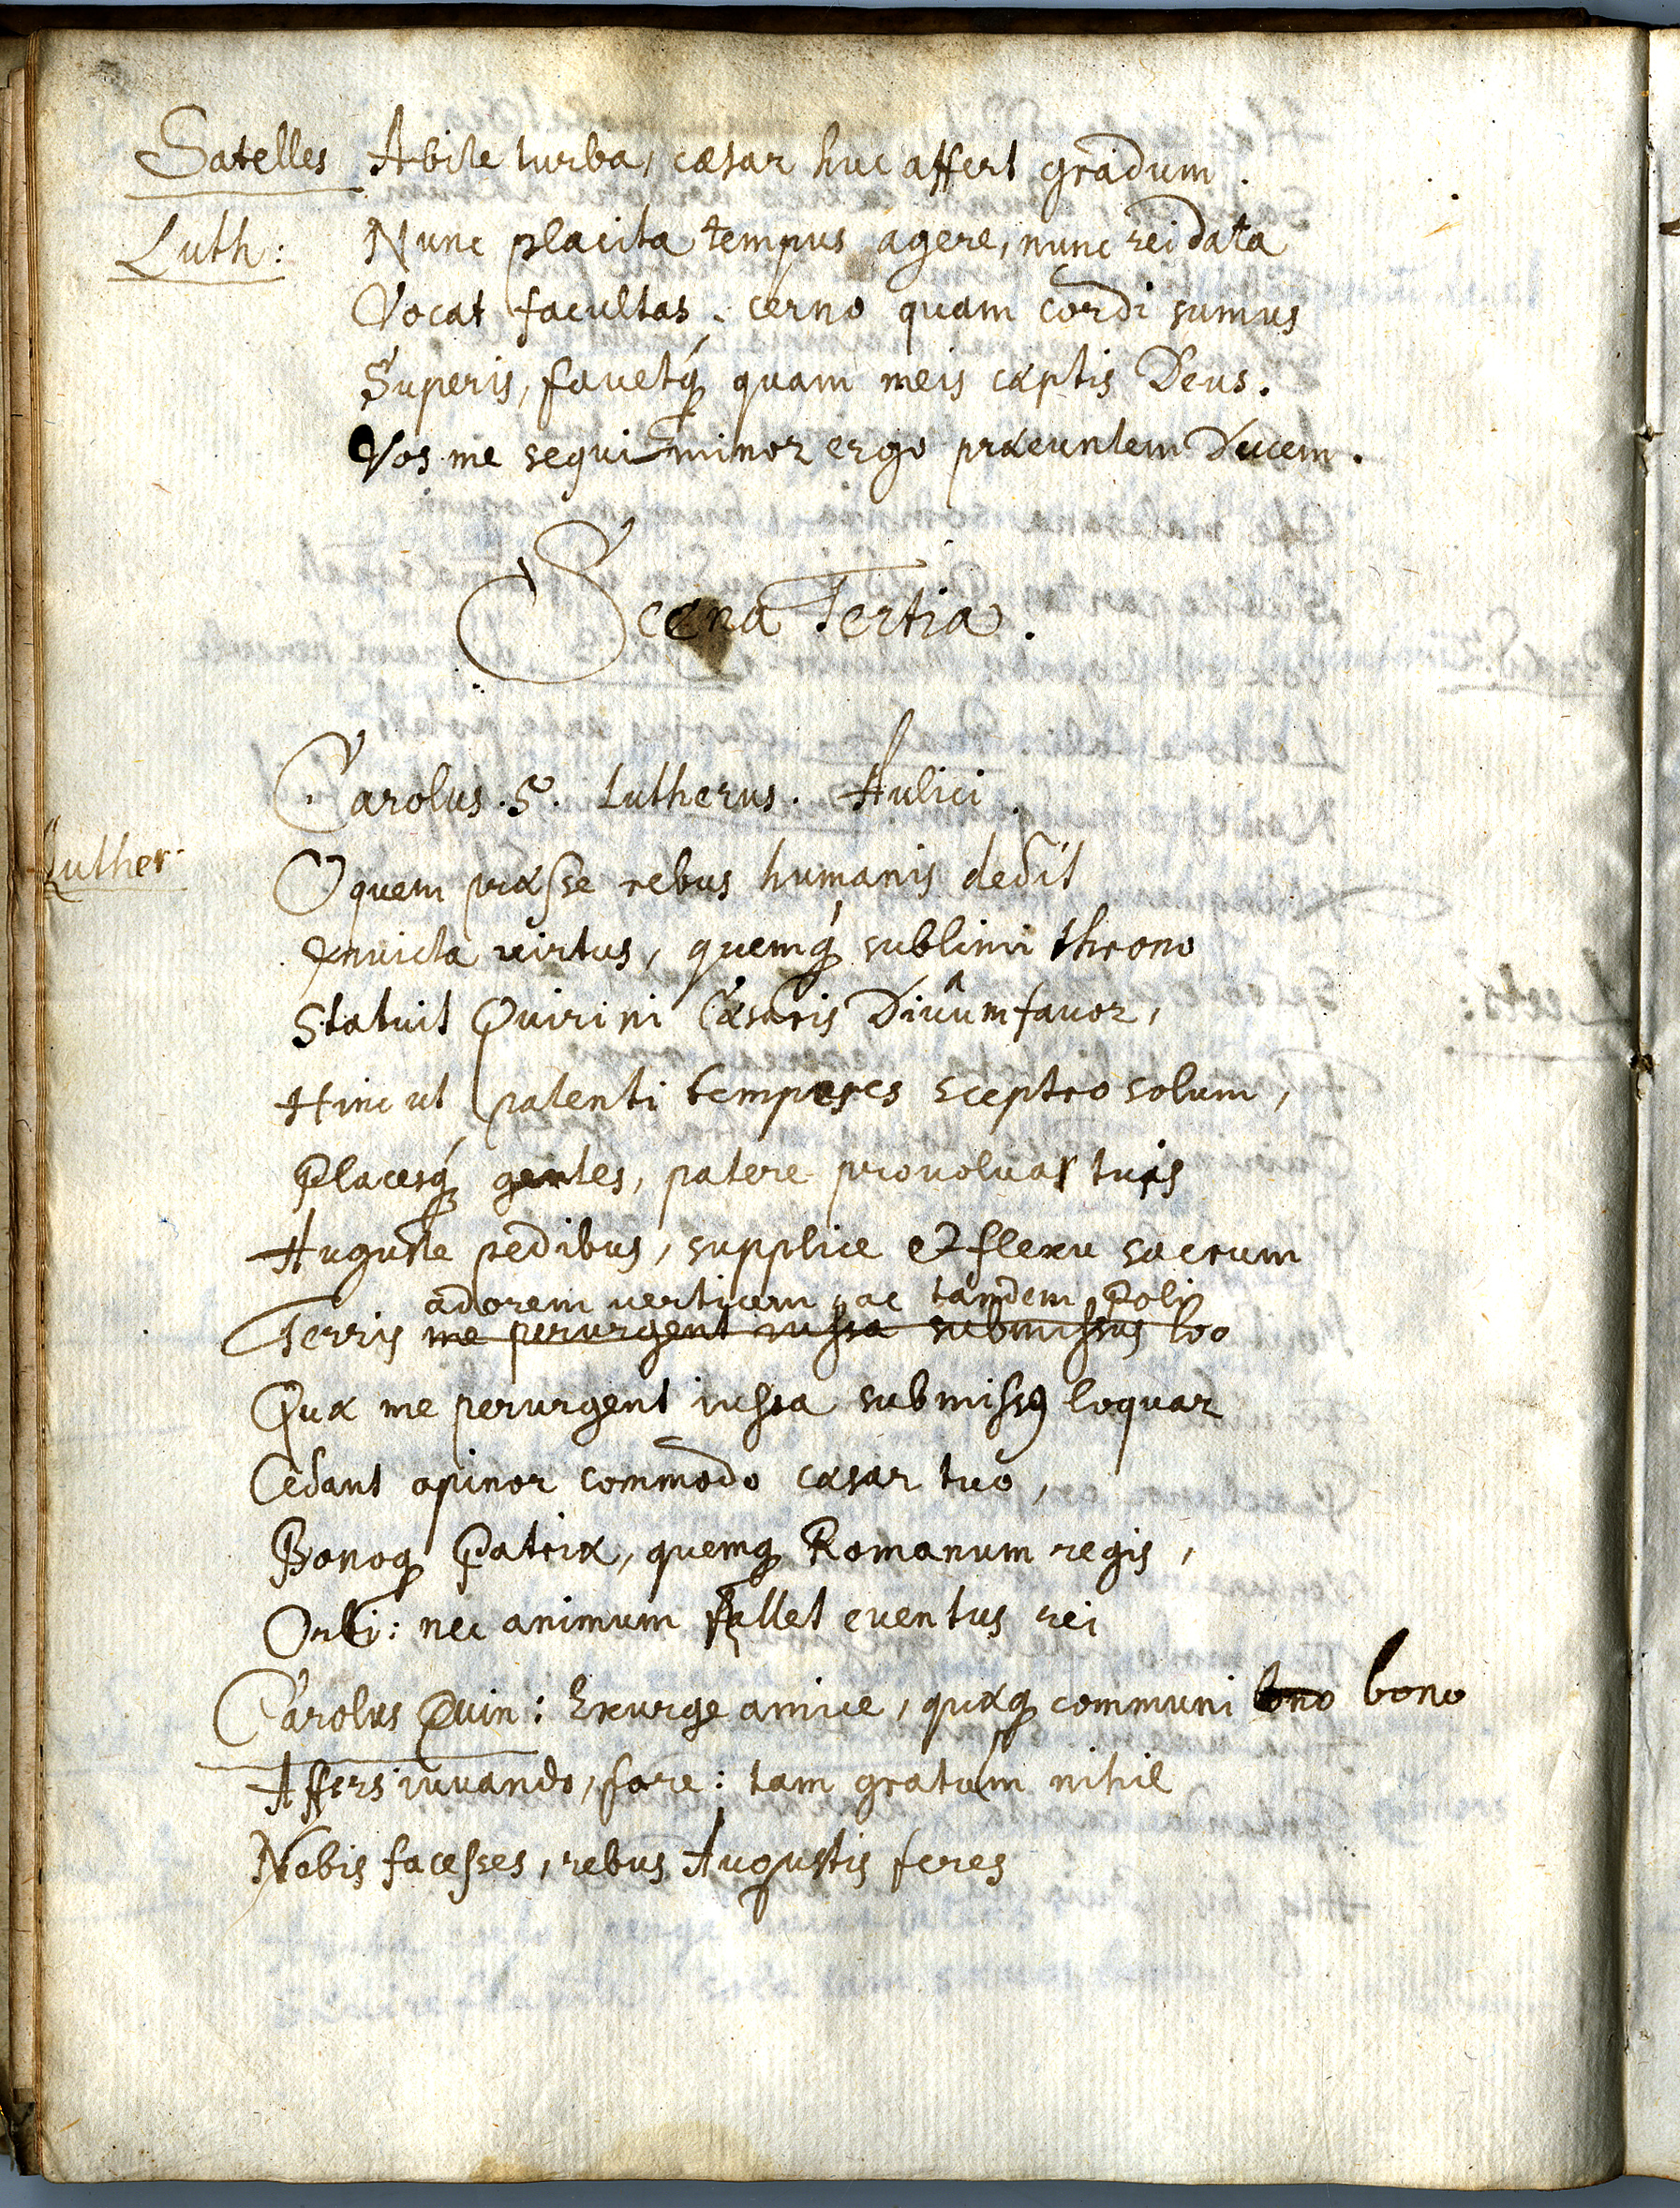 Satelles Abite turba, cæsar huc affert gradum.
Luth: Nunc placita tempus agere, nunc rei data
Vocat facultas. cerno quam cordi sumus
Superis, favetq́ quam meis cæptis Deus.
Vos me sequiminor ergo præeuntem Ducem.
Scena Tertia.
Carolus .5. Lutherus. Aulici.
Luther O quem præsse rebus humanis dedit
Invicta virtus, quemq́ sublimi throno
Statuit Quirini Cæsaris Divûm favor,
Hinc ut patenti temperes sceptro solum,
Placesq́ gentes, patere provolvar tuis
Auguste pedibus, supplice et flexu sacrum
adorem verticem, ac tandem Poli
Terris me perurgent iussa submissus loo
Quæ me perurgent iussa submissꝰ loquar
Cedant opinor commodo cæsar tuo,
Bonoq Patriæ, quemq Romanum regis,
Orbi: nec animum fallet eventus rei
Carolus Quin: Exurge amice, quæq communi bono bono
Affers iuvando, fare: tam gratum nihil
Nobis facesses, rebus Augustis feres